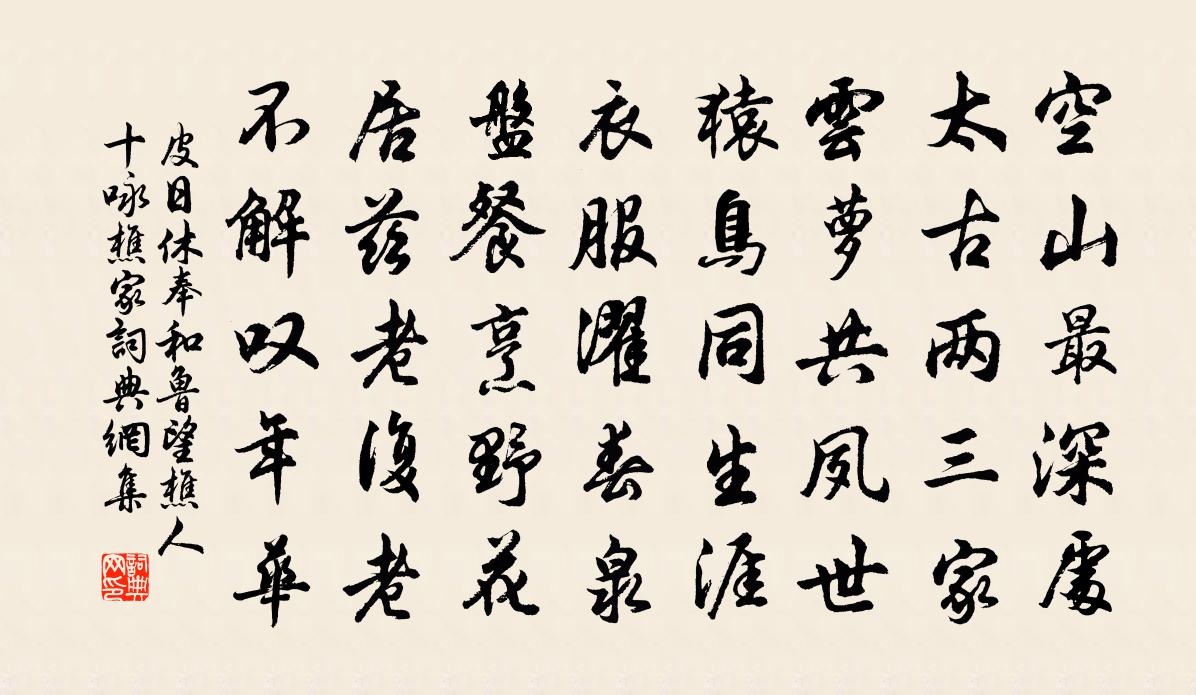 空山最深處
太古两三家
雲萝共夙世
猿鳥同生涯
衣服濯春泉
盤餐烹野花
居茲老復老
不解叹年華
皮日休奉和魯望樵人
十咏樵家詞典網集
詞典
网印